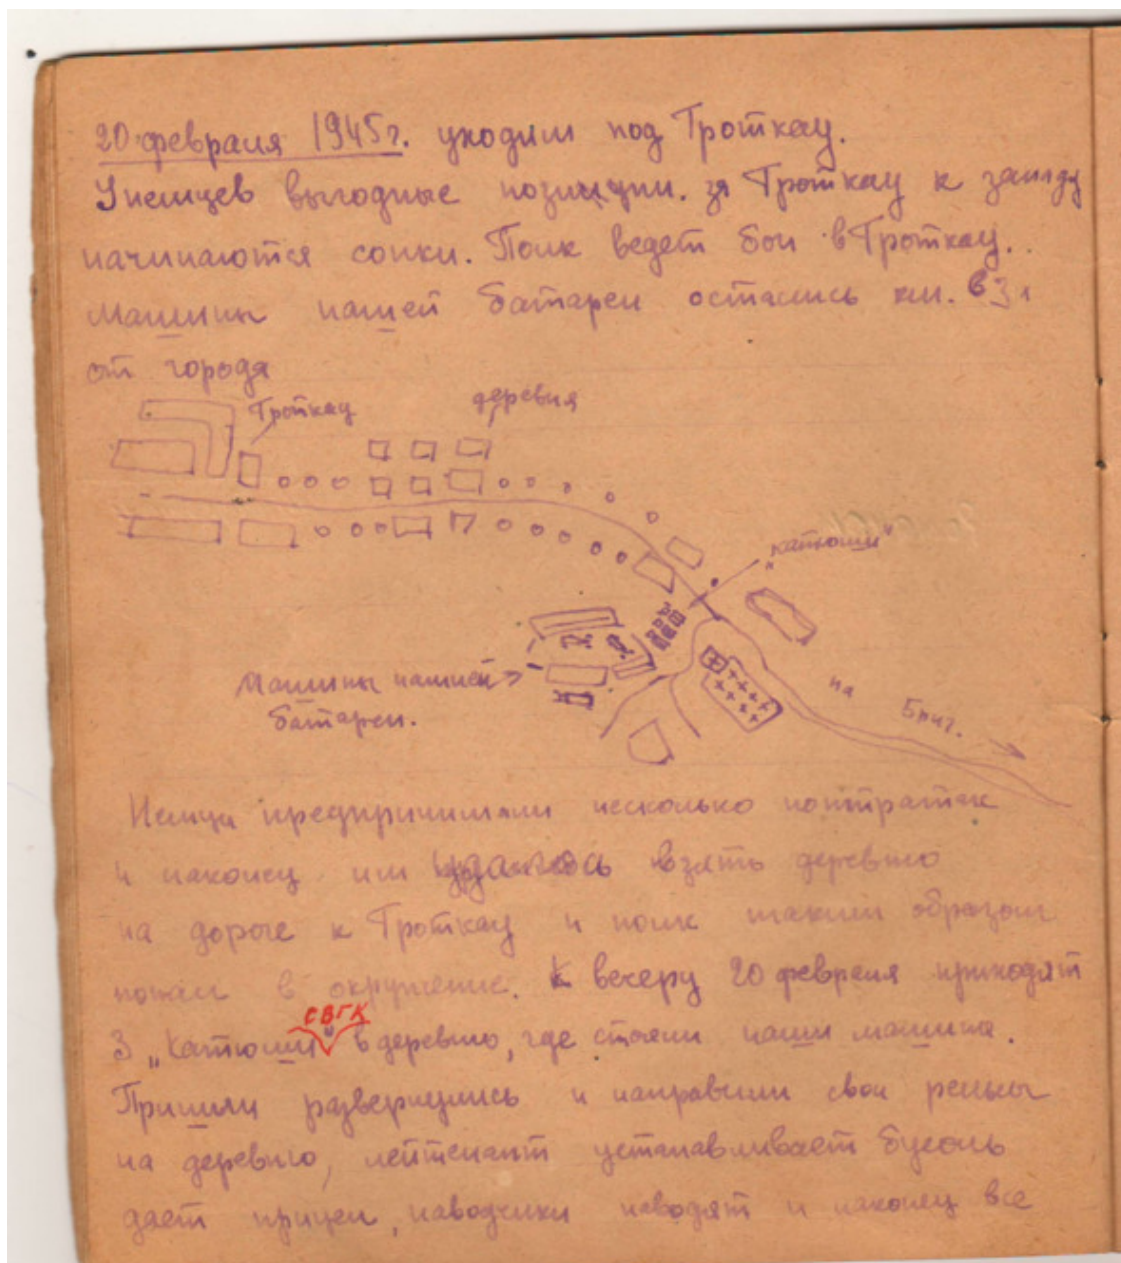 20 февраля 1945г. уходим под Гроткау.
У немцев выгодные позиции. за Гроткау к западу
начинаются сопки. Полк ведет бои в Гроткау.
Машины нашей батареи остались км. в 3х
от города
Гроткау
деревня
"катюши"
Машины нашей
батареи.
на Бриг.
Немцы предпринимали несколько контратак
и наконец им удалось взять деревню
на дороге к Гроткау и полк таким образом
попал в окружение. К вечеру 20 февраля приходят
СВГК
3 "Катюши" в деревню, где стояли наши машина.
Пришли развернулись и направили свои рельсы
на деревню, лейтенант устанавливает бусоль
дает прицел, наводчики наводят и наконец все